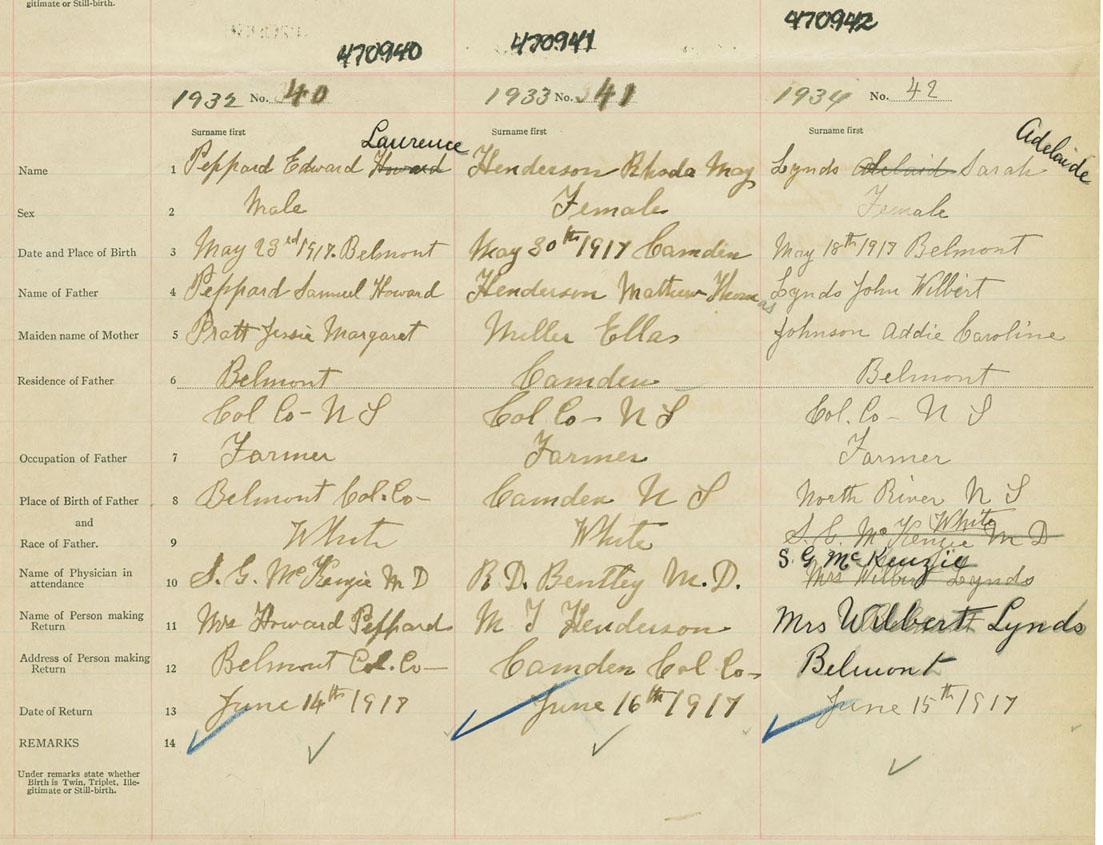 gitimate or Still-birth.
470940 470941 470942
1932 No. 40 1933 No. 41 1934 No. 42
Surname first Surname first Surname first
Laurence Adelaide
Name 1 Peppard Edward Howard Henderson Rhoda May Lynds Adelaid Sarah
Sex 2 Male Female Female
Date and Place of Birth 3 May 23rd 1917. Belmont May 30th 1917 Camden May 18th 1917 Belmont
Name of Father 4 Peppard Samuel Howard Henderson Mathew Thomas Lynds John Wilbert
Maiden name of Mother 5 Pratt Jessie Margaret Miller Ella Johnson Addie Caroline
Residence of Father 6 Belmont Camden Belmont
Col Co - N S Col Co - N S Col. Co - N S
Occupation of Father 7 Farmer Farmer Farmer
Place of Birth of Father 8 Belmont Col. Co - Camden N S North River N S
and White
Race of Father. 9 White White S. G. McKenzie M D
S. G. McKenzie
Name of Physician in
attendance 10 S. G. McKenzie M D R D. Bentley M. D. Mrs Wilbert Lynds
Name of Person making
Return 11 Mrs Howard Peppard M T Henderson Mrs Wilbert Lynds
Address of Person making
Return 12 Belmont Col. Co - Camden Col Co - Belmont
Date of Return 13 June 14th 1917 June 16th 1917 June 15th 1917
REMARKS 14
Under remarks state whether
Birth is Twin, Triplet, Ille-
gitimate or Still-birth.